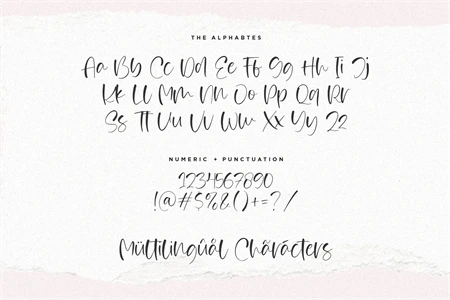 THE ALPHABTES
Aa Bb Cc Dd Ee Ff Gg Hh Ii Jj
Kk Ll Mm Nn Oo Pp Qq Rr
Ss Tt Uu Vv Ww Xx Yy Zz
NUMERIC + PUNCTUATION
1234567890
!@#$%&()+=?/
Mültilingûál Chàräcters